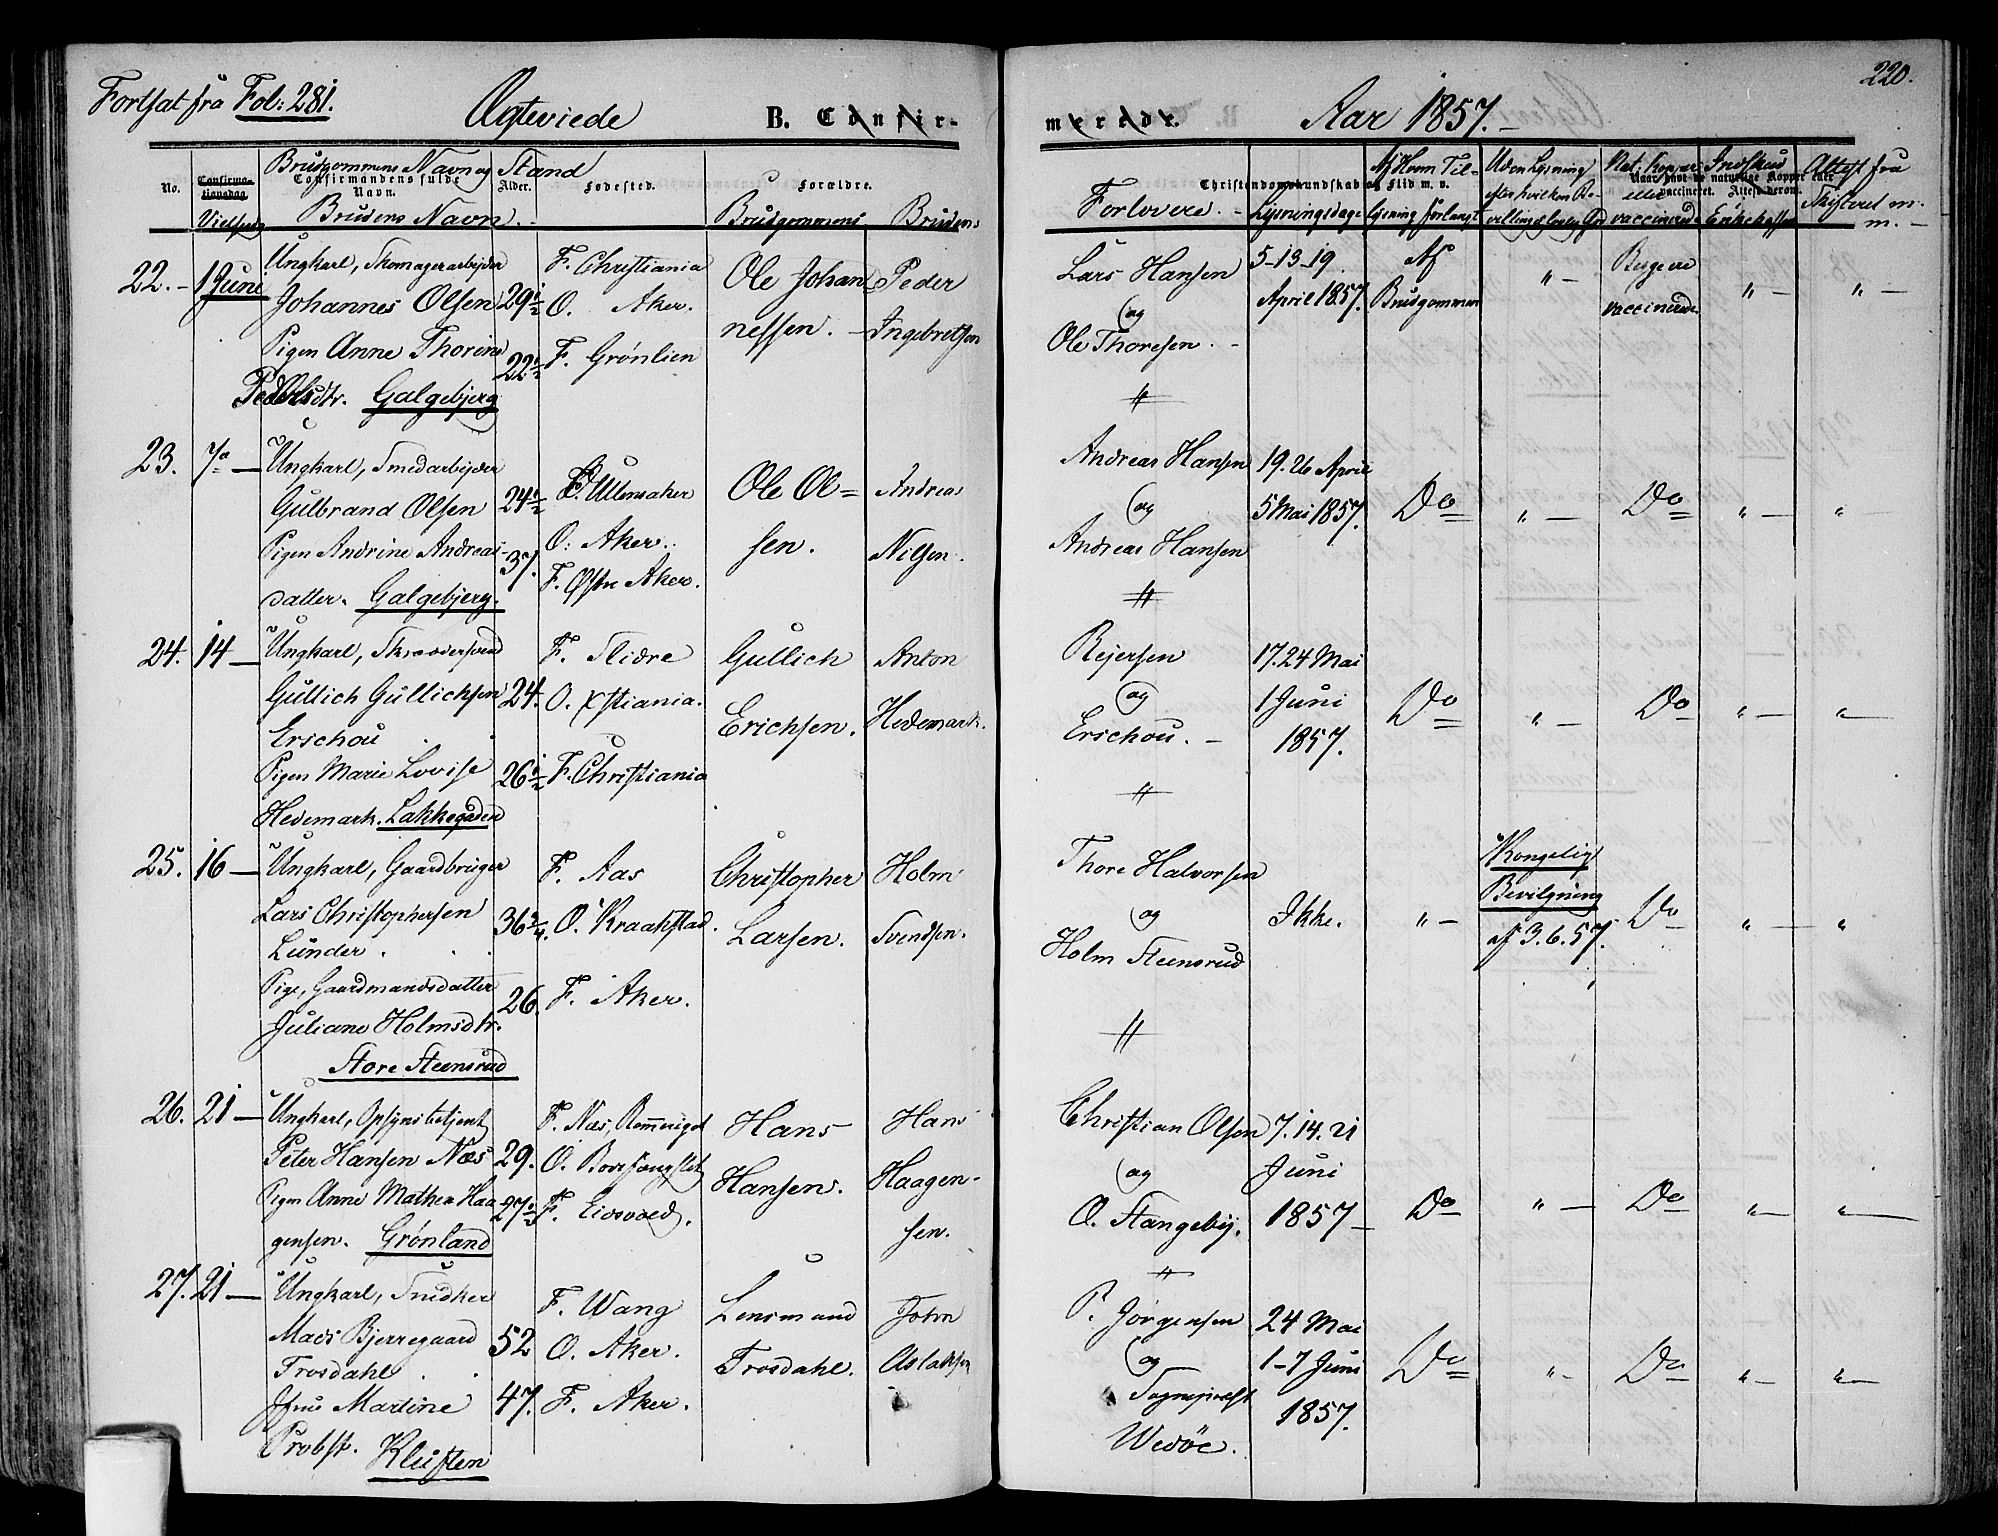 Fortsat fra Fol: 281.
Ægteviede
B. Confir-
merede.
Aar 1857.
220.
No.
Confirmationsdag.
Vielsesdag
Brudgommens Navn og Stand
Confirmandens fulde Navn.
Brudens Navn.
Alder.
Fødested.
Forældre.
Brudgommens
Brudens
Forlovere.
Christendomskundskab og Flid m. v.
Lysningsdage
Af Hvem Tillysning forlangt
Uden Lysning
efter hvilken Bevilling
Nat. Kopper eller vaccinerede
Naar havt de naturlige Kopper eller vaccineret. Attest derom.
Indskud Enkekassen
Attest fra Skiftret m. m.
22. 1 Juni
Ungkarl, Skomagerarbejder
Johannes Olsen 29 1/2
Pigen Anne Thorine 22 1/2
Pedersdtr. Galgebjerg
F. Christiania
O. Aker.
F. Grønlien
Ole Johannessen.
Peder Ingebretsen
Lars Hansen
og
Ole Thoresen.
5-13-19 April 1857.
Af Brudgommen
" -
Begge vaccinerede
" -
" -
23. 7de
Ungkarl, Smedarbejder
Gulbrand Olsen 24 1/2
Pigen Andrine Andreas- 37.
datter. Galgebjerg.
F. Ullensaker
O. Aker.
F. Østre Aker.
Ole Olsen.
Andreas Nilsen.
Andreas Hansen
og
Andreas Hansen
19. 26 April
5 Mai 1857.
Do
" -
Do
" -
"
24. 14
Ungkarl, Skræddersvend
Gullich Gullichsen 24.
Erschou
Pigen Marie Lovise 26 1/2
Hedemark. Lakkegaden
F. Slidre
O. Xstiania.
F. Christiania
Gullich Erichsen.
Anton Hedemark.
Rejersen
og
Erschou.
17. 24 Mai
1 Juni
1857.
Do
" -
Do
" -
" -
25. 16
Ungkarl, Gaardbruger
Lars Christophersen 36 3/4
Lunder.
Pige, Gaardmandsdatter 26.
Juliane Holmsdtr.
Store Steensrud
F. Aas
O. Kraakstad.
F. Aker.
Christopher Larsen.
Holm Svendsen.
Thore Halvorsen
og
Holm Steensrud
Ikke.
" -
Kongelig
Bevilgning
af 3. 6. 57.
Do
" -
"
26. 21
Ungkarl, Opsynsbetjent
Peter Hansen Næs 29.
Pigen Anne Mathea Haa- 27 1/2
gensen. Grønland
F. Næs, Romeriget
O. Bodsfængslet
F. Eidsvold.
Hans Hansen.
Hans Haagensen.
Christian Olsen
og
O. Stangeby.
7. 14. 21
Juni
1857
Do
" -
Do
" -
" -
27. 21
Ungkarl, Snedker
Mads Bjerregaard 52
Trosdahl
Jfru Martine 47.
Probst. Kluften
F. Wang
O. Aker.
F. Aker.
Lensmand Trosdahl.
John Aslaksen
P. Jørgensen
og
Sognepræst
Wedøe.
24 Mai
1-7 Juni
1857.
Do
" -
Do
" -
" -